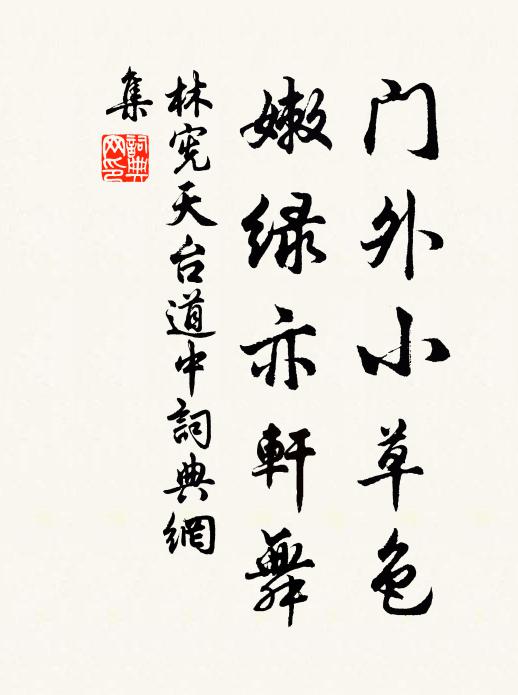 门外小草色
嫩绿亦軒舞
林宪天台道中詞典網
集
詞典
网印